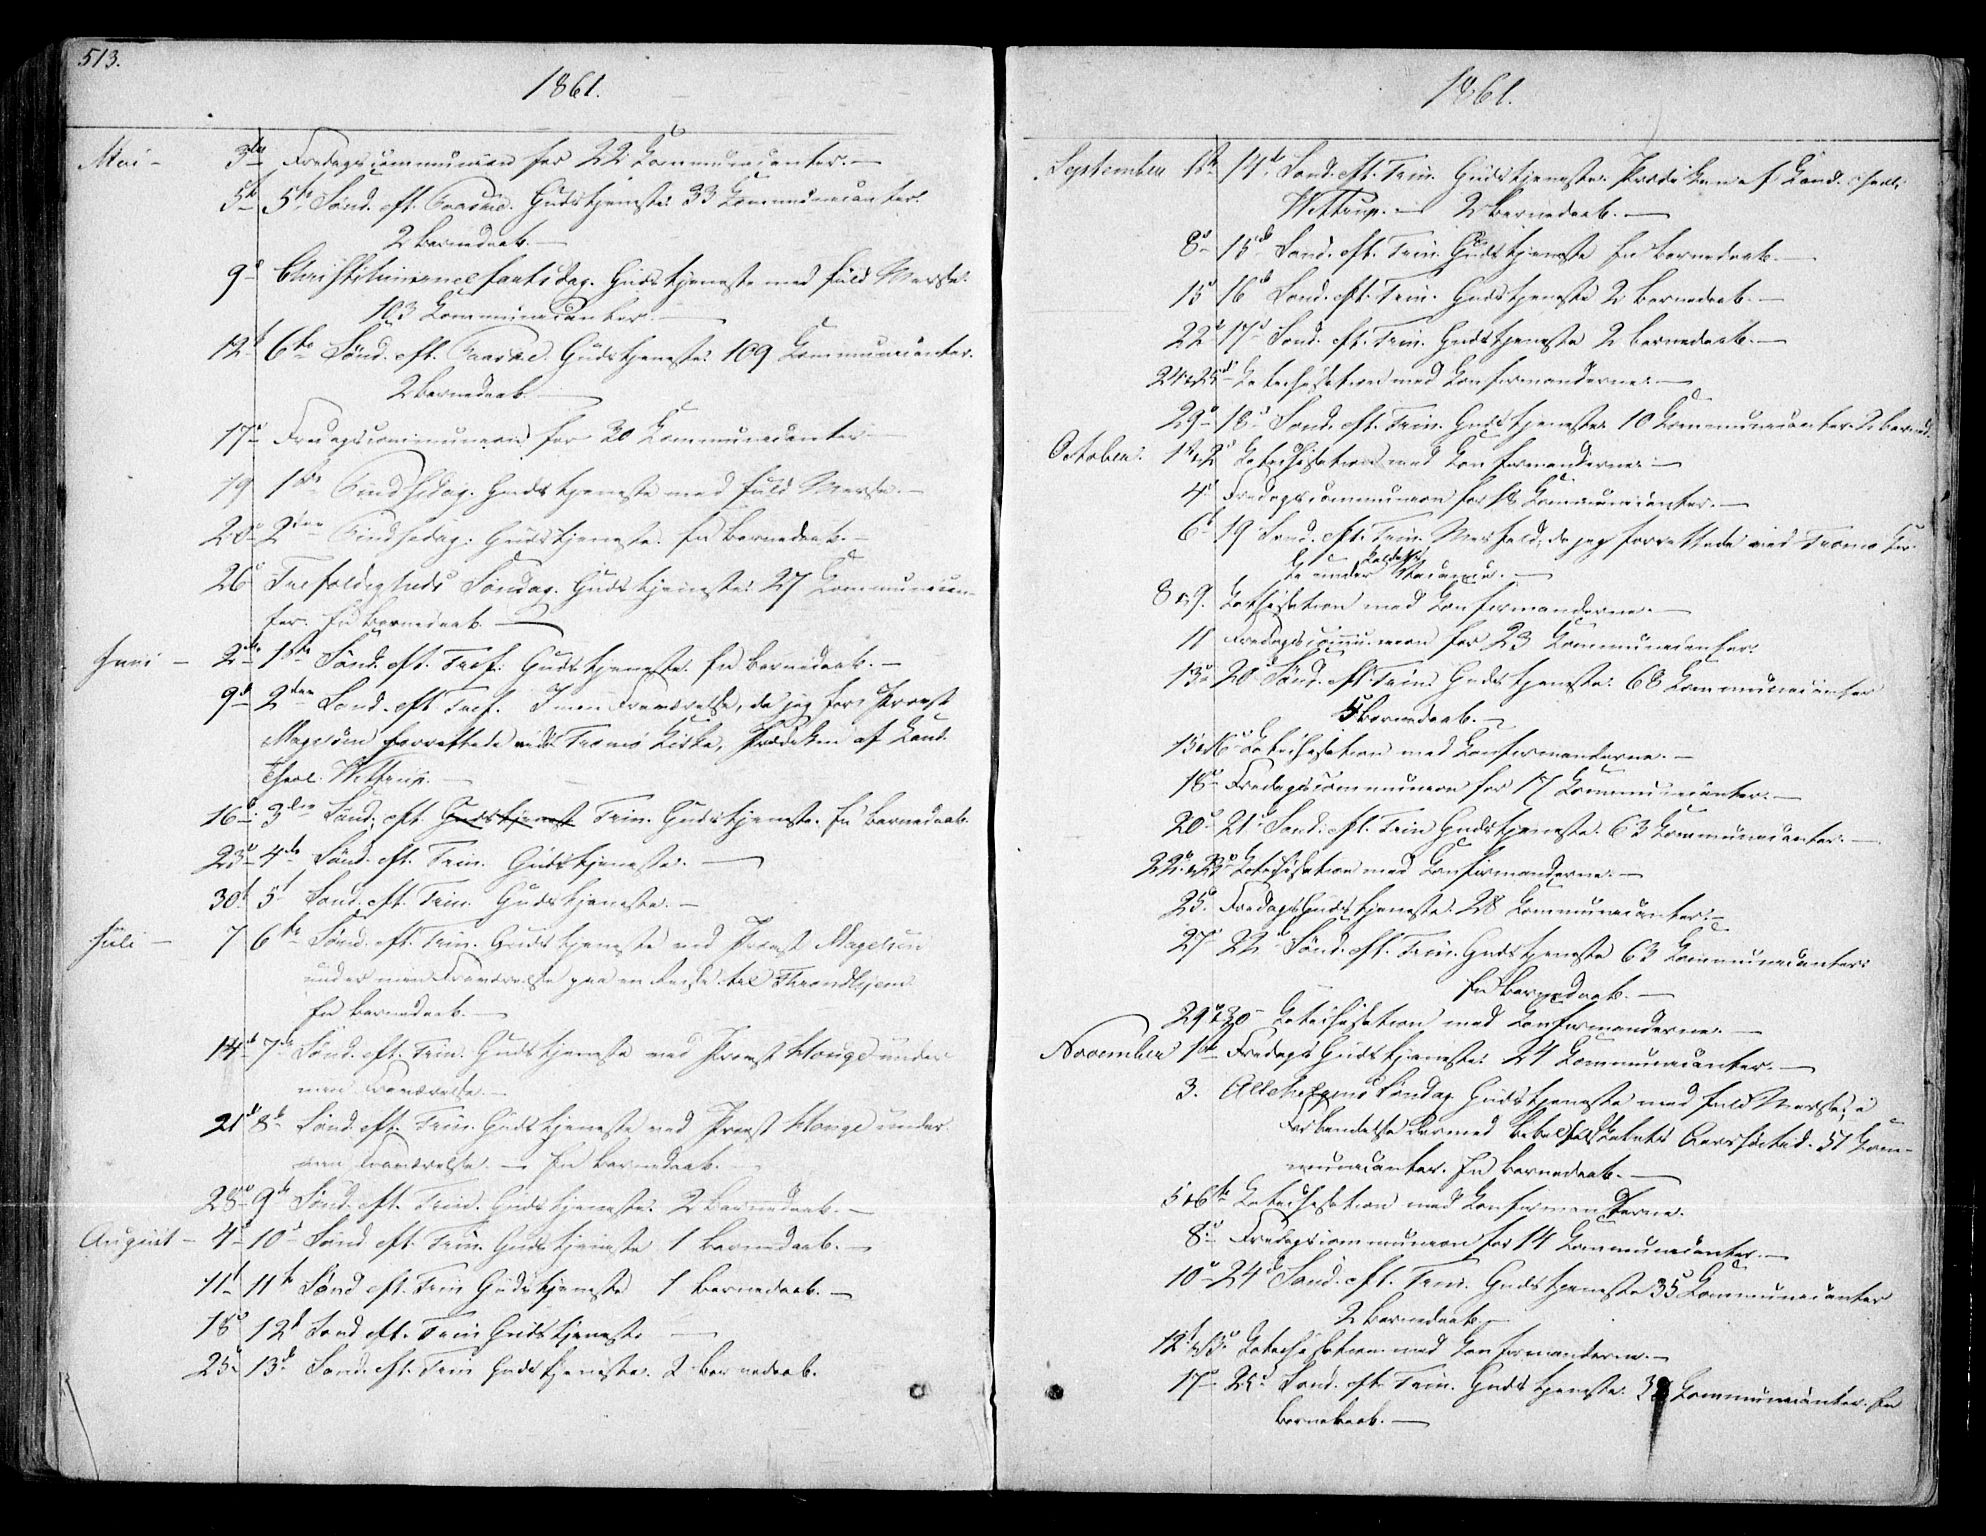 513.
1861.
Mai - 3die Fredagscommunion for 22 Communicanter. -
5te 5te Sønd. eft. Paaske. Gudstjeneste. 33 Communicanter.
2 Barnedaab. -
9de Christi Himmelfartsdag. Gudstjeneste med fuld Messe.
103 Communicanter. -
12te 6te Sønd. eft. Paaske. Gudstjeneste. 109 Communicanter.
2 Barnedaab. -
17de Fredagscommunion for 30 Communicanter -
19 1ste Pindsedag. Gudstjeneste med fuld Messe. -
20de 2den Pindsedag. Gudstjeneste. En Barnedaab. -
26de Trefoldigheds Søndag. Gudstjeneste. 27 Communican-
ter. En Barnedaab. -
Juni - 2den 1ste Sønd. eft. Tref. Gudstjeneste. En Barnedaab. -
9de 2den Sønd. eft. Tref. I min Fraværelse, da jeg for Provst
Magelsen forrettede ved Tromø Kirke, Prædiken af Cand.
theol. Wettrup. -
16de 3die Sønd. eft. Gudstjenest Trin. Gudstjeneste. En Barnedaab.
23de 4de Sønd. eft. Trin. Gudstjeneste. -
30te 5te Sønd. eft. Trin. Gudstjeneste. -
Juli - 7 6te Sønd. eft. Trin. Gudstjeneste ved Provst Magelsen
under min Fraværelse paa en Reise til Throndhjem.
En Barnedaab. -
14de 7de Sønd. eft. Trin. Gudstjeneste ved Provst Hauge under
min Fraværelse. -
21de 8de Sønd. eft. Trin. Gudstjeneste ved Provst Hauge under
min Fraværelse. - En Barnedaab. -
28de 9de Sønd. eft. Trin. Gudstjeneste. 2 Barnedaab. -
August - 4de 10de Sønd. eft. Trin. Gudstjeneste 1 Barnedaab. -
11te 11te Sønd. eft. Trin Gudstjeneste 1 Barnedaab. -
18de 12te Sønd. eft. Trin Gudstjeneste -
25de 13de Sønd. eft. Trin Gudstjeneste. 2 Barnedaab.
1861.
September 1ste 14de Sønd. eft. Trin. Gudstjeneste. Prædiken af Cand. theol.
Wettrup. - 2 Barnedaab. -
8de 15de Sønd. eft. Trin. Gudstjeneste En Barnedaab. -
15de 16de Sønd. eft. Trin. Gudstjeneste 2 Barnedaab. -
22de 17de Sønd. eft. Trin. Gudstjeneste 2 Barnedaab. -
24 & 25de Catechisation med Confirmanderne. -
29de 18de Sønd. eft. Trin. Gudstjeneste. 10 Communicanter. 2 Barned.
October. 1ste & 2den Catechisation med Confirmanderne. -
4de Fredagscommunion for 18 Communicanter. -
6te 19 Sønd. eft. Trin. Messefald, da jeg forrettede ved Tromø Kir-
ke under Kaldets Vacance. -
8 & 9. Catechisation med Confirmanderne. -
11 Fredagscommunion for 23 Communicanter.
13de 20de Sønd. eft. Trin. Gudstjeneste. 68 Communicanter
5 Barnedaab. -
15 & 16de Catechisation med Confirmanderne. -
18de Fredagscommunion for 17 Communicanter. -
20de 21de Sønd. eft. Trin Gudstjeneste. 63 Communicanter. -
22de & 23de Catechisation med Confirmanderne. -
25de Fredags Gudstjeneste. 28 Communicanter. -
27de 22de Sønd. eft. Trin. Gudstjeneste 63 Communicanter.
En Barnedaab. -
29 & 30 Catechisation med Confirmanderne. -
November 1ste Fredags Gudstjeneste. 24 Communicanter. -
3. Allehelgens Søndag Gudstjeneste med fuld Messe; i
Forbindelse dermed Bibelselskabets Aarshøitid. 51 Com-
municanter. En Barnedaab. -
5 & 6te Catechisation med Confirmanderne.
8de Fredagscommunion for 14 Communicanter. -
10de 24de Sønd. eft. Trin. Gudstjeneste 35 Communicanter
2 Barnedaab. -
12te & 13de Catechisation med Confirmanderne. -
17de 25de Sønd. eft. Trin. Gudstjeneste. Communicanter. En
Barnedaab. -